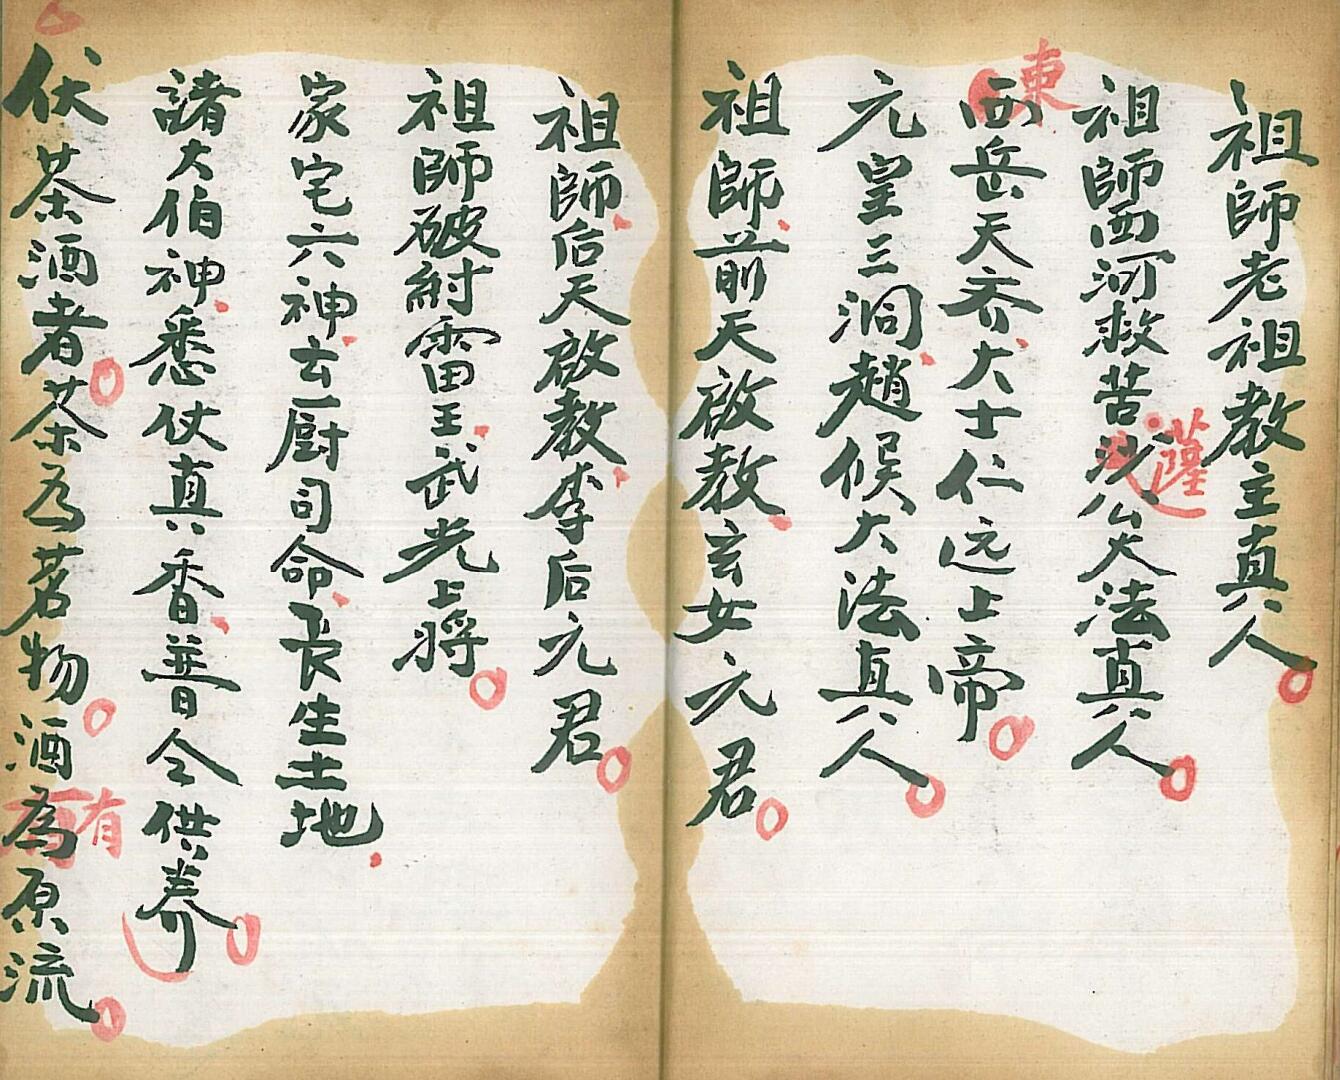 祖師老祖教主真人
祖師西河救苦沙公大法真人
薩
西岳天齐大士仁远上帝
東
元皇三洞趙候大法真人
祖師前天啟教玄女元君
祖師后天啟教李后元君
祖師破紂雷王武光上將
家宅六神玄厨司命長生土地
諸大伯神悉仗真香普同供养
伏茶酒者茶为茗物酒為原流
有